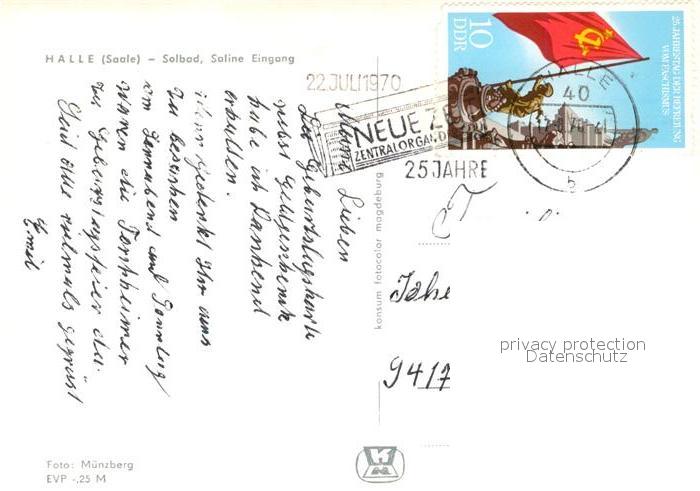 HALLE (Saale) – Solbad, Saline Eingang
22. JULI 1970
NEUE Z
ZENTRALORGAN D
25 JAHRE
HALLE
40
b
10
DDR
25. JAHRESTAG DER BEFREIUNG
VOM FASCHISMUS
Meine Lieben
Die Geburtstagskarte
nebst Geldgeschenk
habe ich dankend
erhalten.
Wann gedenkt Ihr uns
zu besuchen
am Sonnabend und Sonntag
waren die
zur Geburtstagsfeier da.
Seid alle vielmals gegrüßt
Emil
konsum fotocolor magdeburg
9417
privacy protection
Datenschutz
Foto: Münzberg
EVP -.25 M